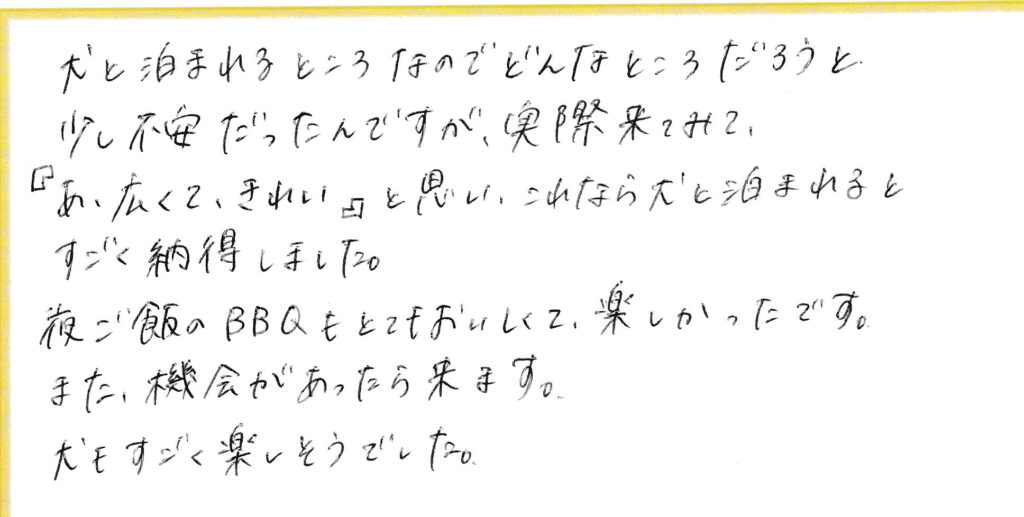 犬と泊まれるところなのでどんなところだろうと
少し不安だったんですが、実際来てみて、
『あ、広くて、きれい』と思い、これなら犬と泊まれると
すごく納得しました。
夜ご飯のBBQもとてもおいしくて、楽しかったです。
また、機会があったら来ます。
犬もすごく楽しそうでした。